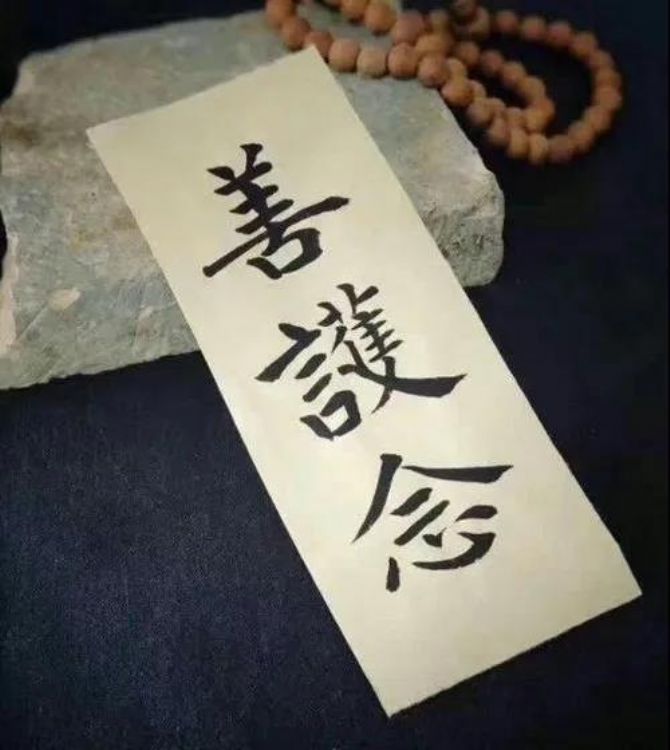 善護念